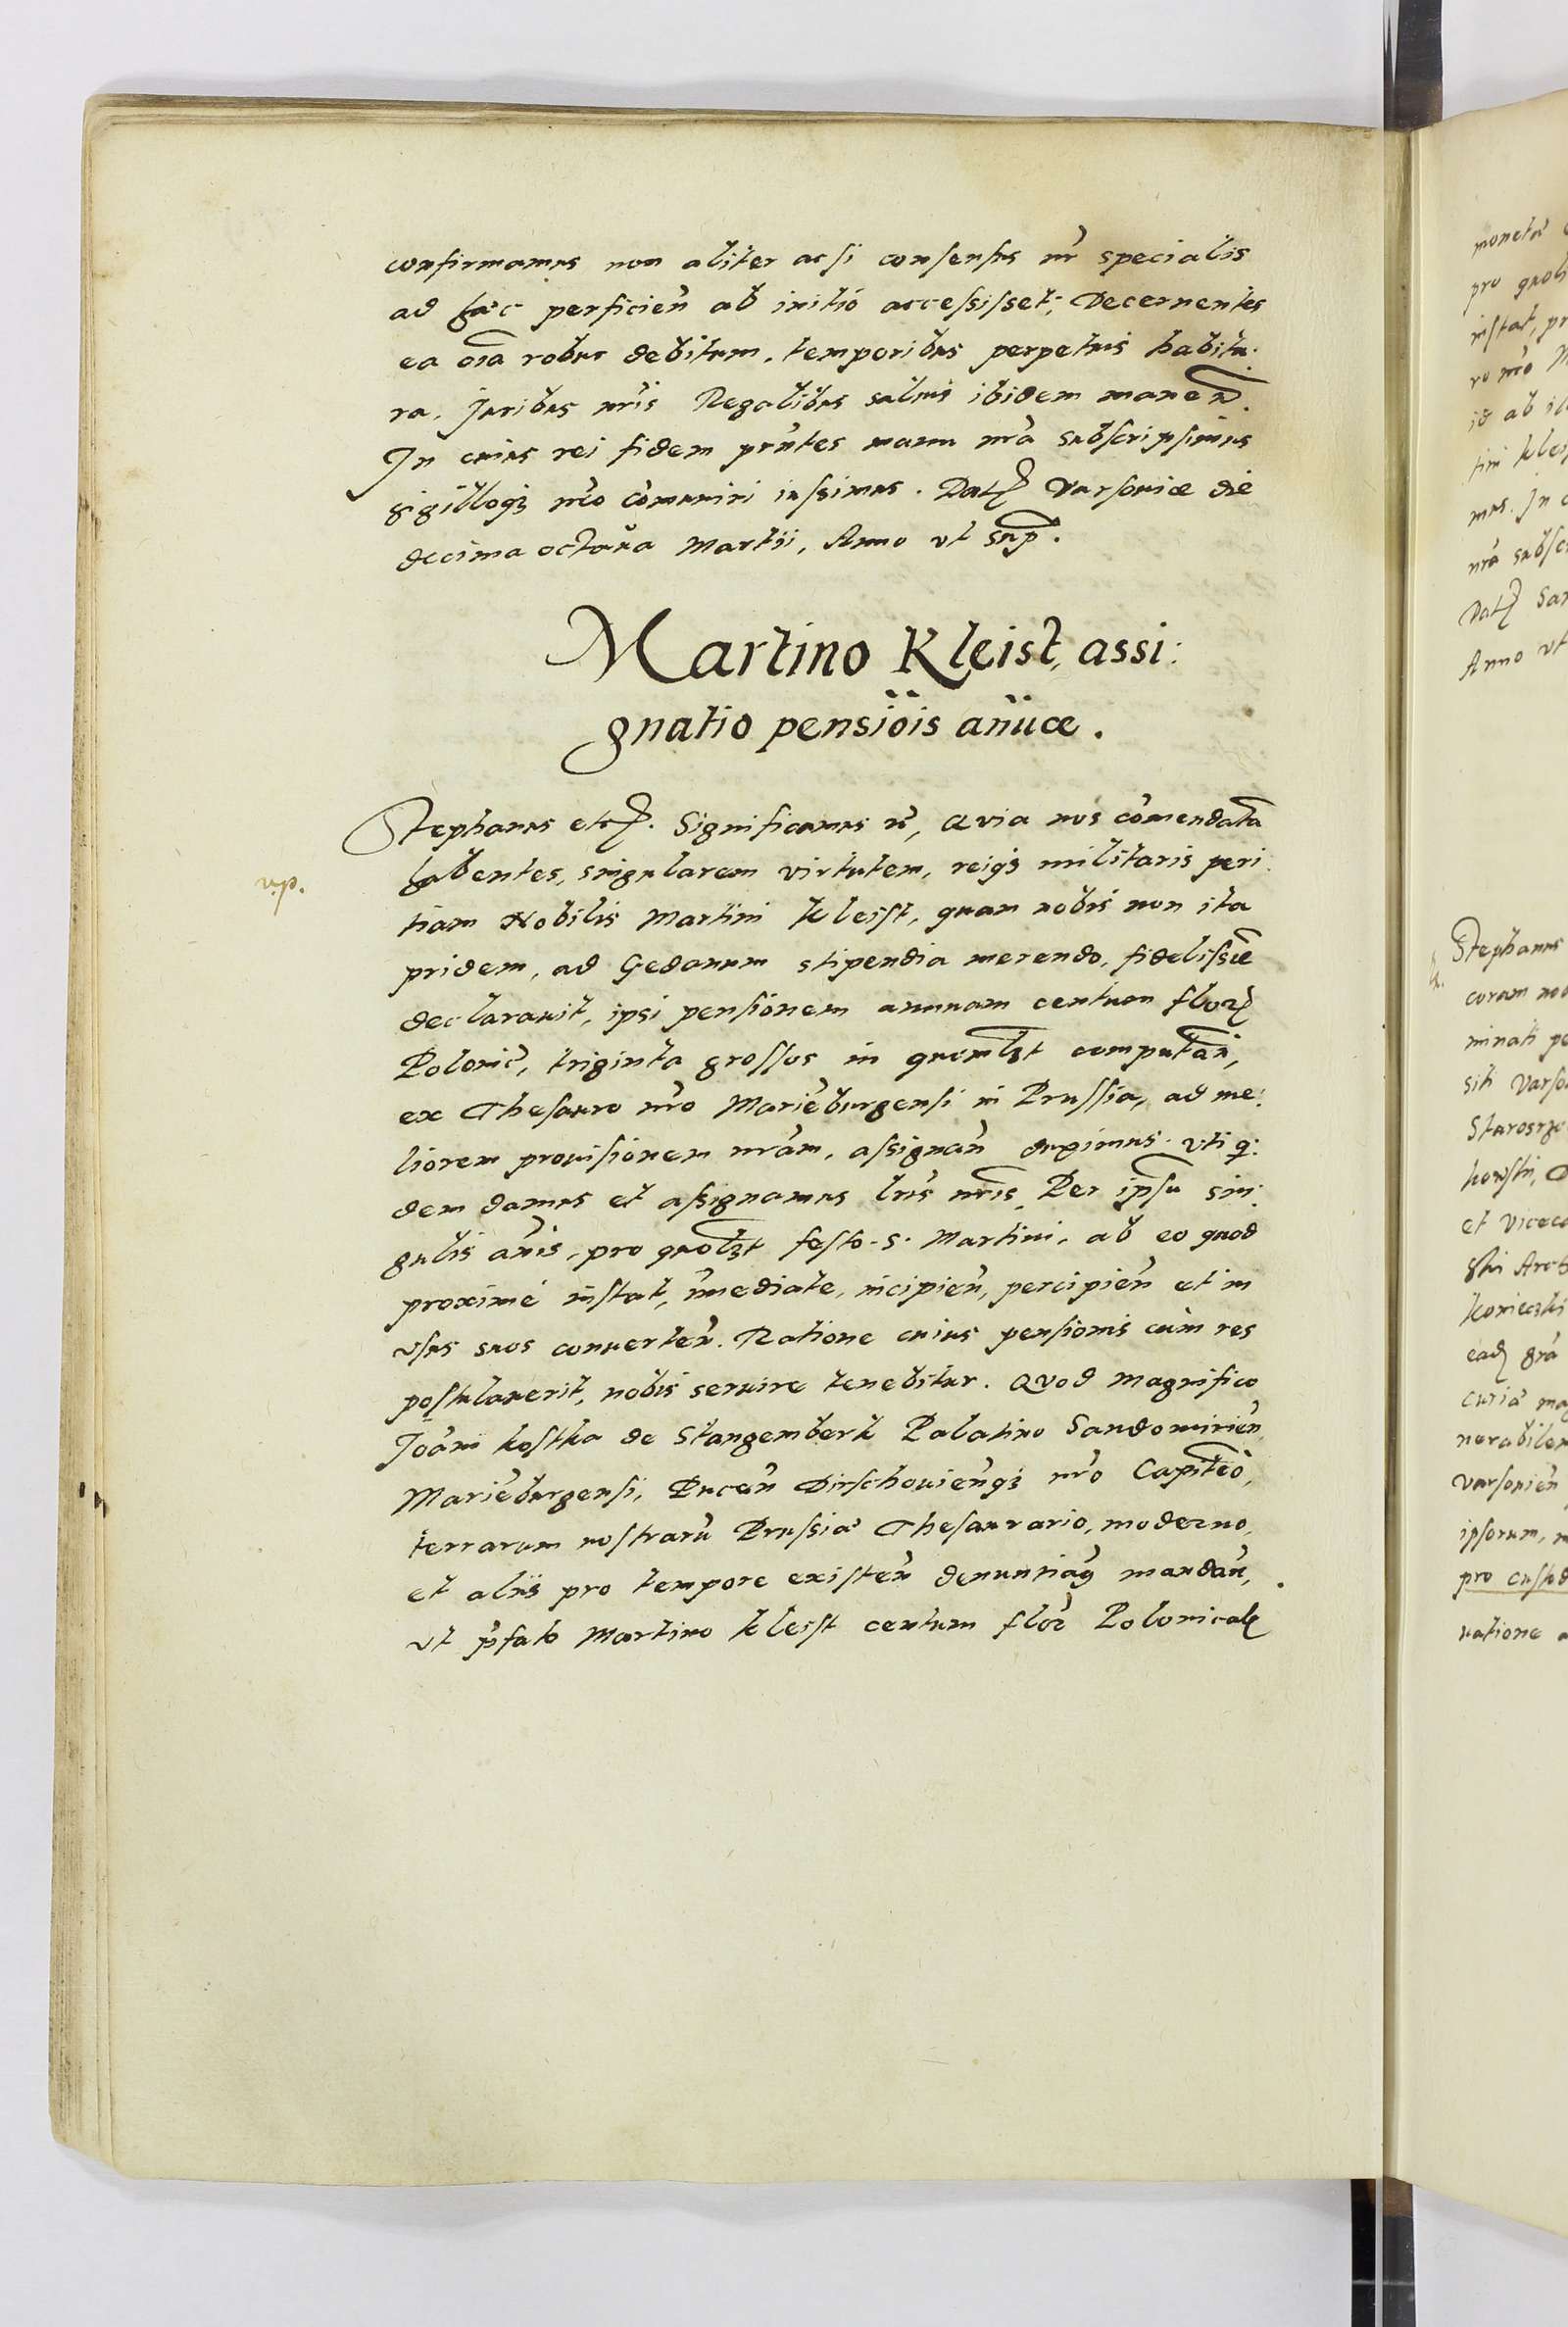 confirmamus non aliter ac si consensus nr̃ specialis
ad hæc perficien̄ ab initio accessisset; Decernentes
ea oīa robur debitum, temporibus perpetuis habitu:
ra. Juribus nr̄is Regalibus saluis ibidem manen̄.
In cuius rei fidem pr̄ntes manu nr̄a subscripsimus
sigilloq3 nr̄o com̄uniri iussimus. Dat Varsouiæ die
decima octaua Martii, Anno vt sup.
Martino Kleist, assi:
gnatio pensiōis an̄uæ.
Stephanus etc. Significamus etc̄, Quia nos com̄endata
v.p.
habentes, singularem virtutem, reiq3 militaris peri:
tiam Nobilis Martini Kleist, quam nobis non ita
pridem, ad Gedanum stipendia merendo, fidelissīe
declarauit, ipsi pensionem annuam centum flor
Polonic̄, triginta grossos in quoml3t computan̄,
ex Thesauro nr̄o Mariēburgensi in Prussia, ad me:
liorem prouisionem nr̄am, assignan̄ duximus. vti q:
dem damus et assignamus lr̄is nr̄is. Per ipsū sin:
gulis an̄is, pro quol3t festo S. Martini, ab eo quod
proximè instat, im̄ediate, incipien̄, percipien̄ et in
vsus suos conuerten̄. Ratione cuius pensionis cùm res
postulauerit, nobis seruire tenebitur. Quod Magnifico
Joan̄i Kostka de Stangemberk Palatino Sandomirien̄
Mariēburgensi, Pucen̄ Dirschouien̄q3 nr̄o Capiteō,
terrarum nostrarū Prussiæ Thesaurario, moderno,
et aliis pro tempore existen̄ denuntiaṃ mandan̄,
vt p̄fato Martino Kleist centum flor Polonical
monetæ
pro quoli
instat, pr
ro nr̄o M
id ab il
tini Kleis
mus. In c
nr̄a subsc
Dat Var
Anno vt
Stephanus
coram no
minati pe
siti Varso
et Viceca
Koniecki
ead gr̄a
curiæ ma
nerabilem
Varsouien̄
ipsorum, m
pro custod
ratione a